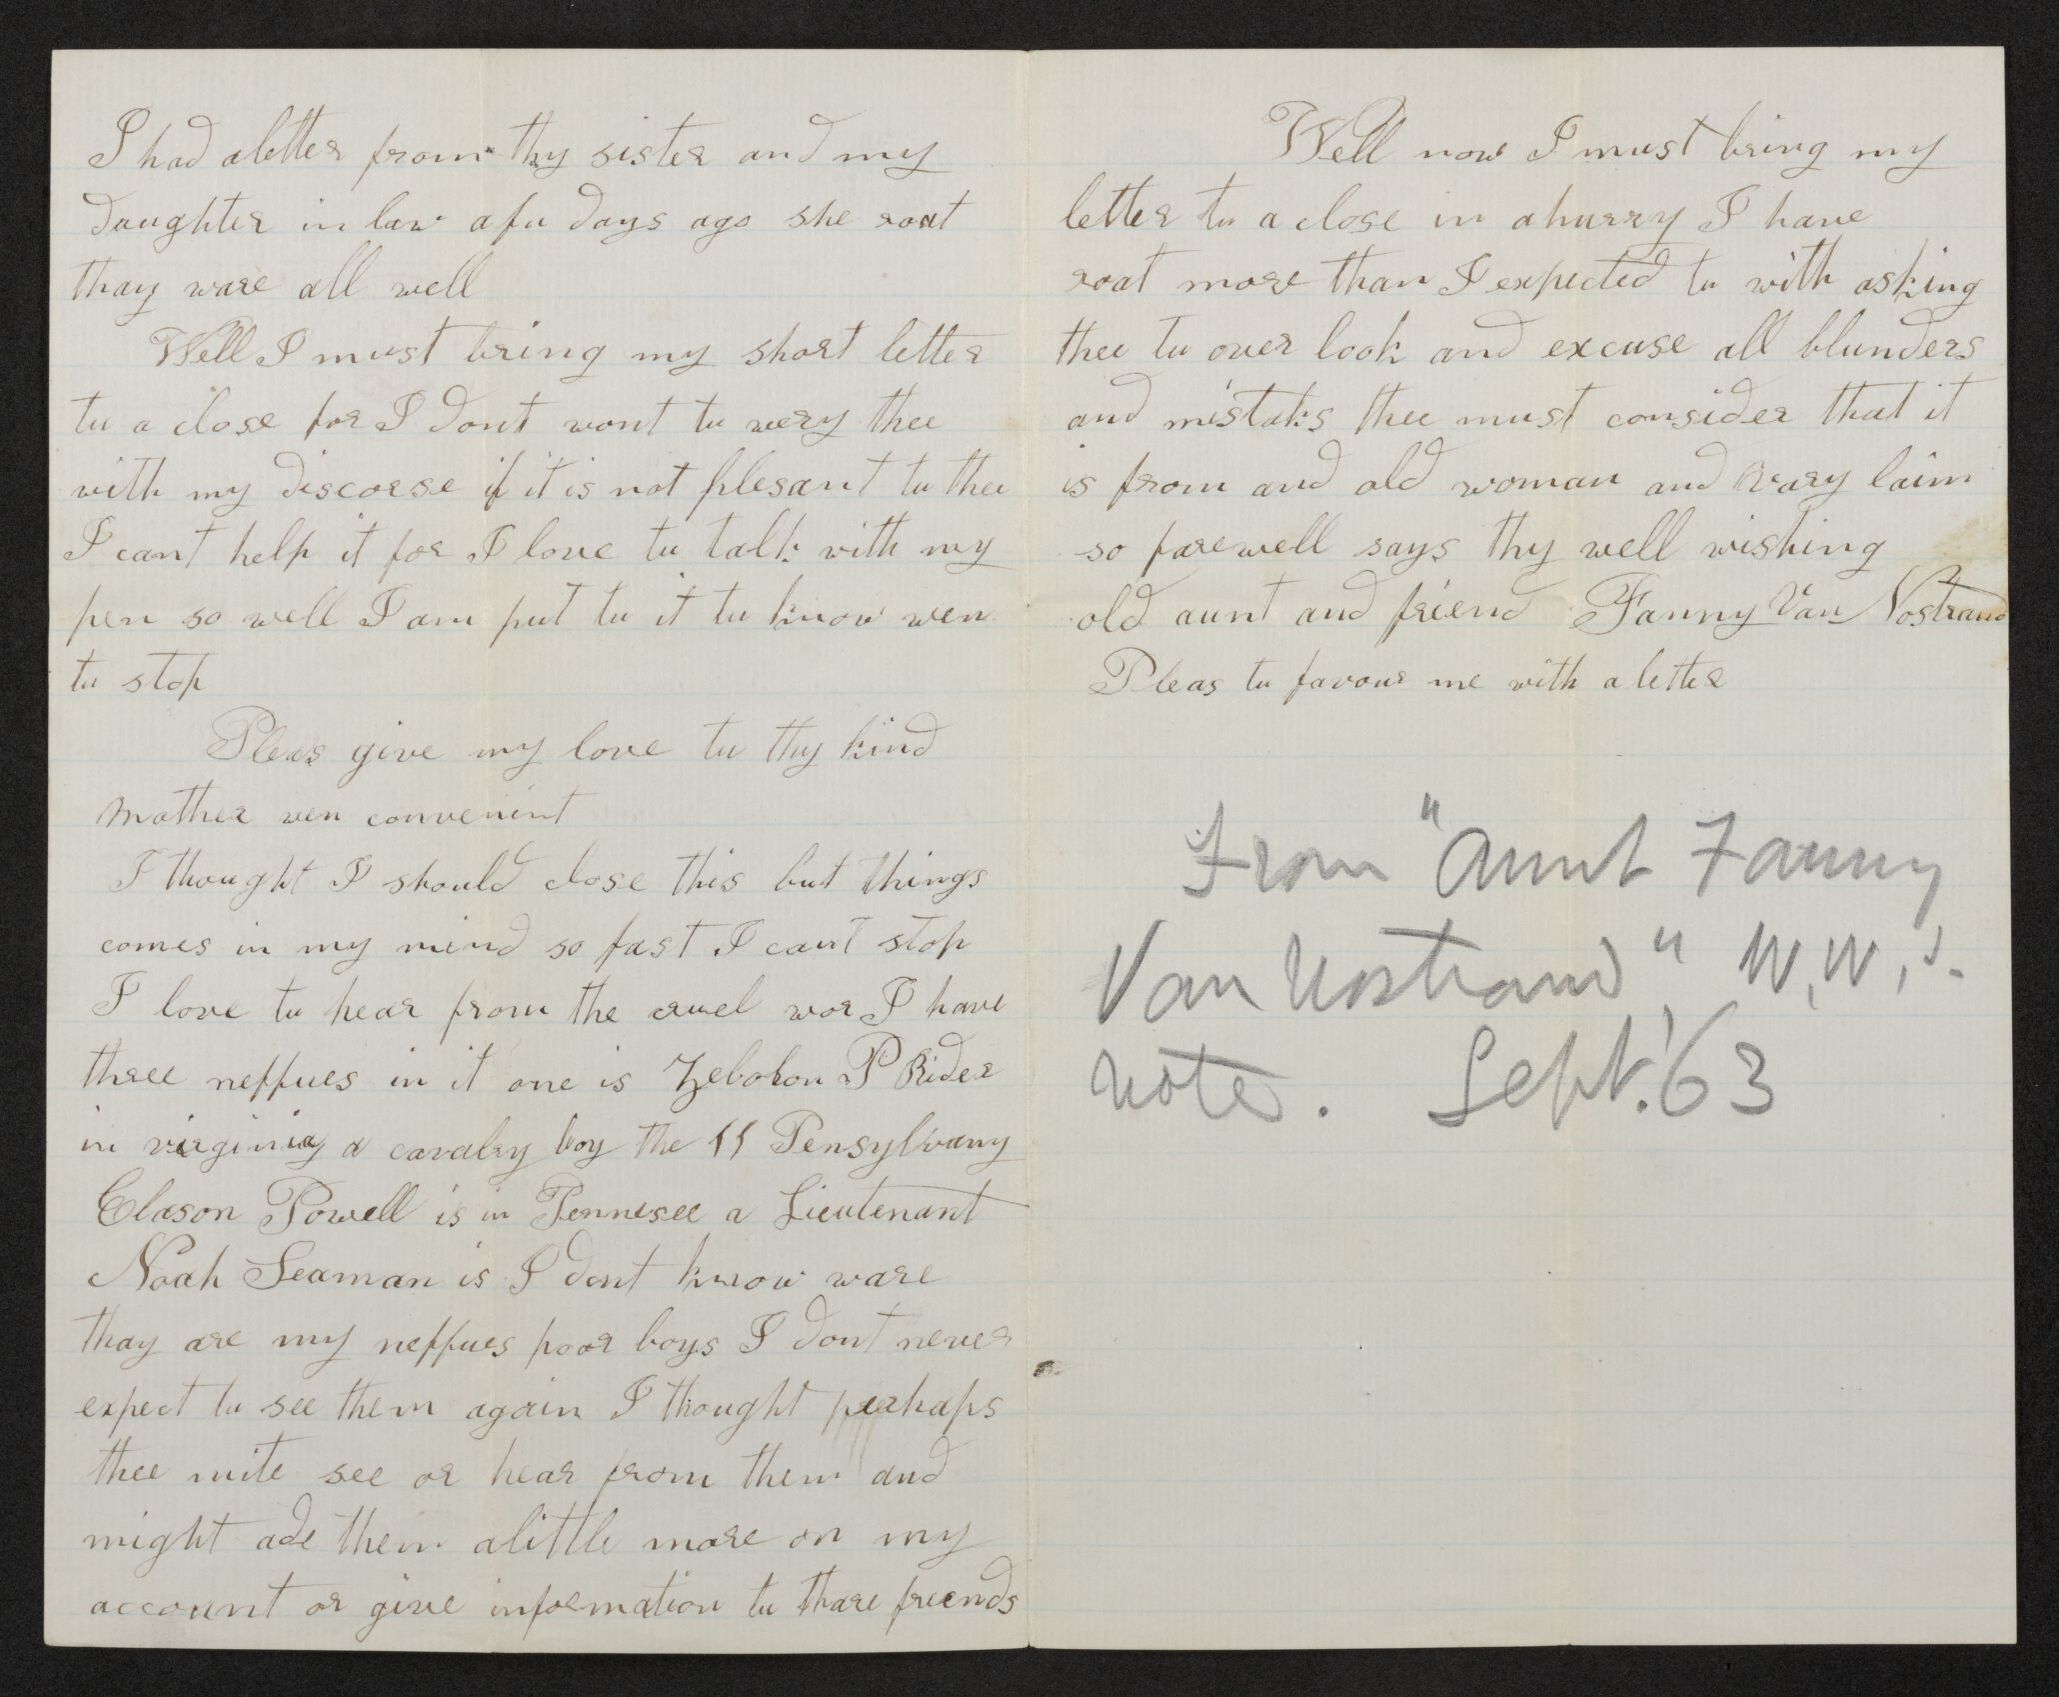 I had a letter from thy sister and my
daughter in law a fu days ago she roat
thay ware all well
Well I must bring my short letter
tu a close for I dont wont tu wery thee
with my discorse if it is not plesant tu thee
I cant help it for I love tu talk with my
pen so well I am put tu it tu know wen
tu stop
Pleas give my love tu thy kind
mother wen convenint
I thought I should close this but things
comes in my mind so fast I cant stop
I love tu hear from the cruel wor I have
three neffues in it one is Zebolon P Rider
in virginiay a cavalry boy the 11 Pensylvany
Clason Powell is in Tennesee a Lieutenant
Noah Seaman is I dont know ware
thay are my neffues poor boys I dont never
expect tu see them again I thought perhaps
thee mite see or hear from them and
might ade them a little more on my
account or give information tu thare friends
Well now I must bring my
letter tu a close in a hurry I have
roat more than I expected tu with asking
thee tu over look and excuse all blunders
and mistaks thee must consider that it
is from and old woman and vary laim
so farewell says thy well wishing
old aunt and friend Fanny Van Nostrand
Pleas tu favour me with a letter
From "Aunt Fanny
Van Nostrand" W.W.'s
note. Sept. '63